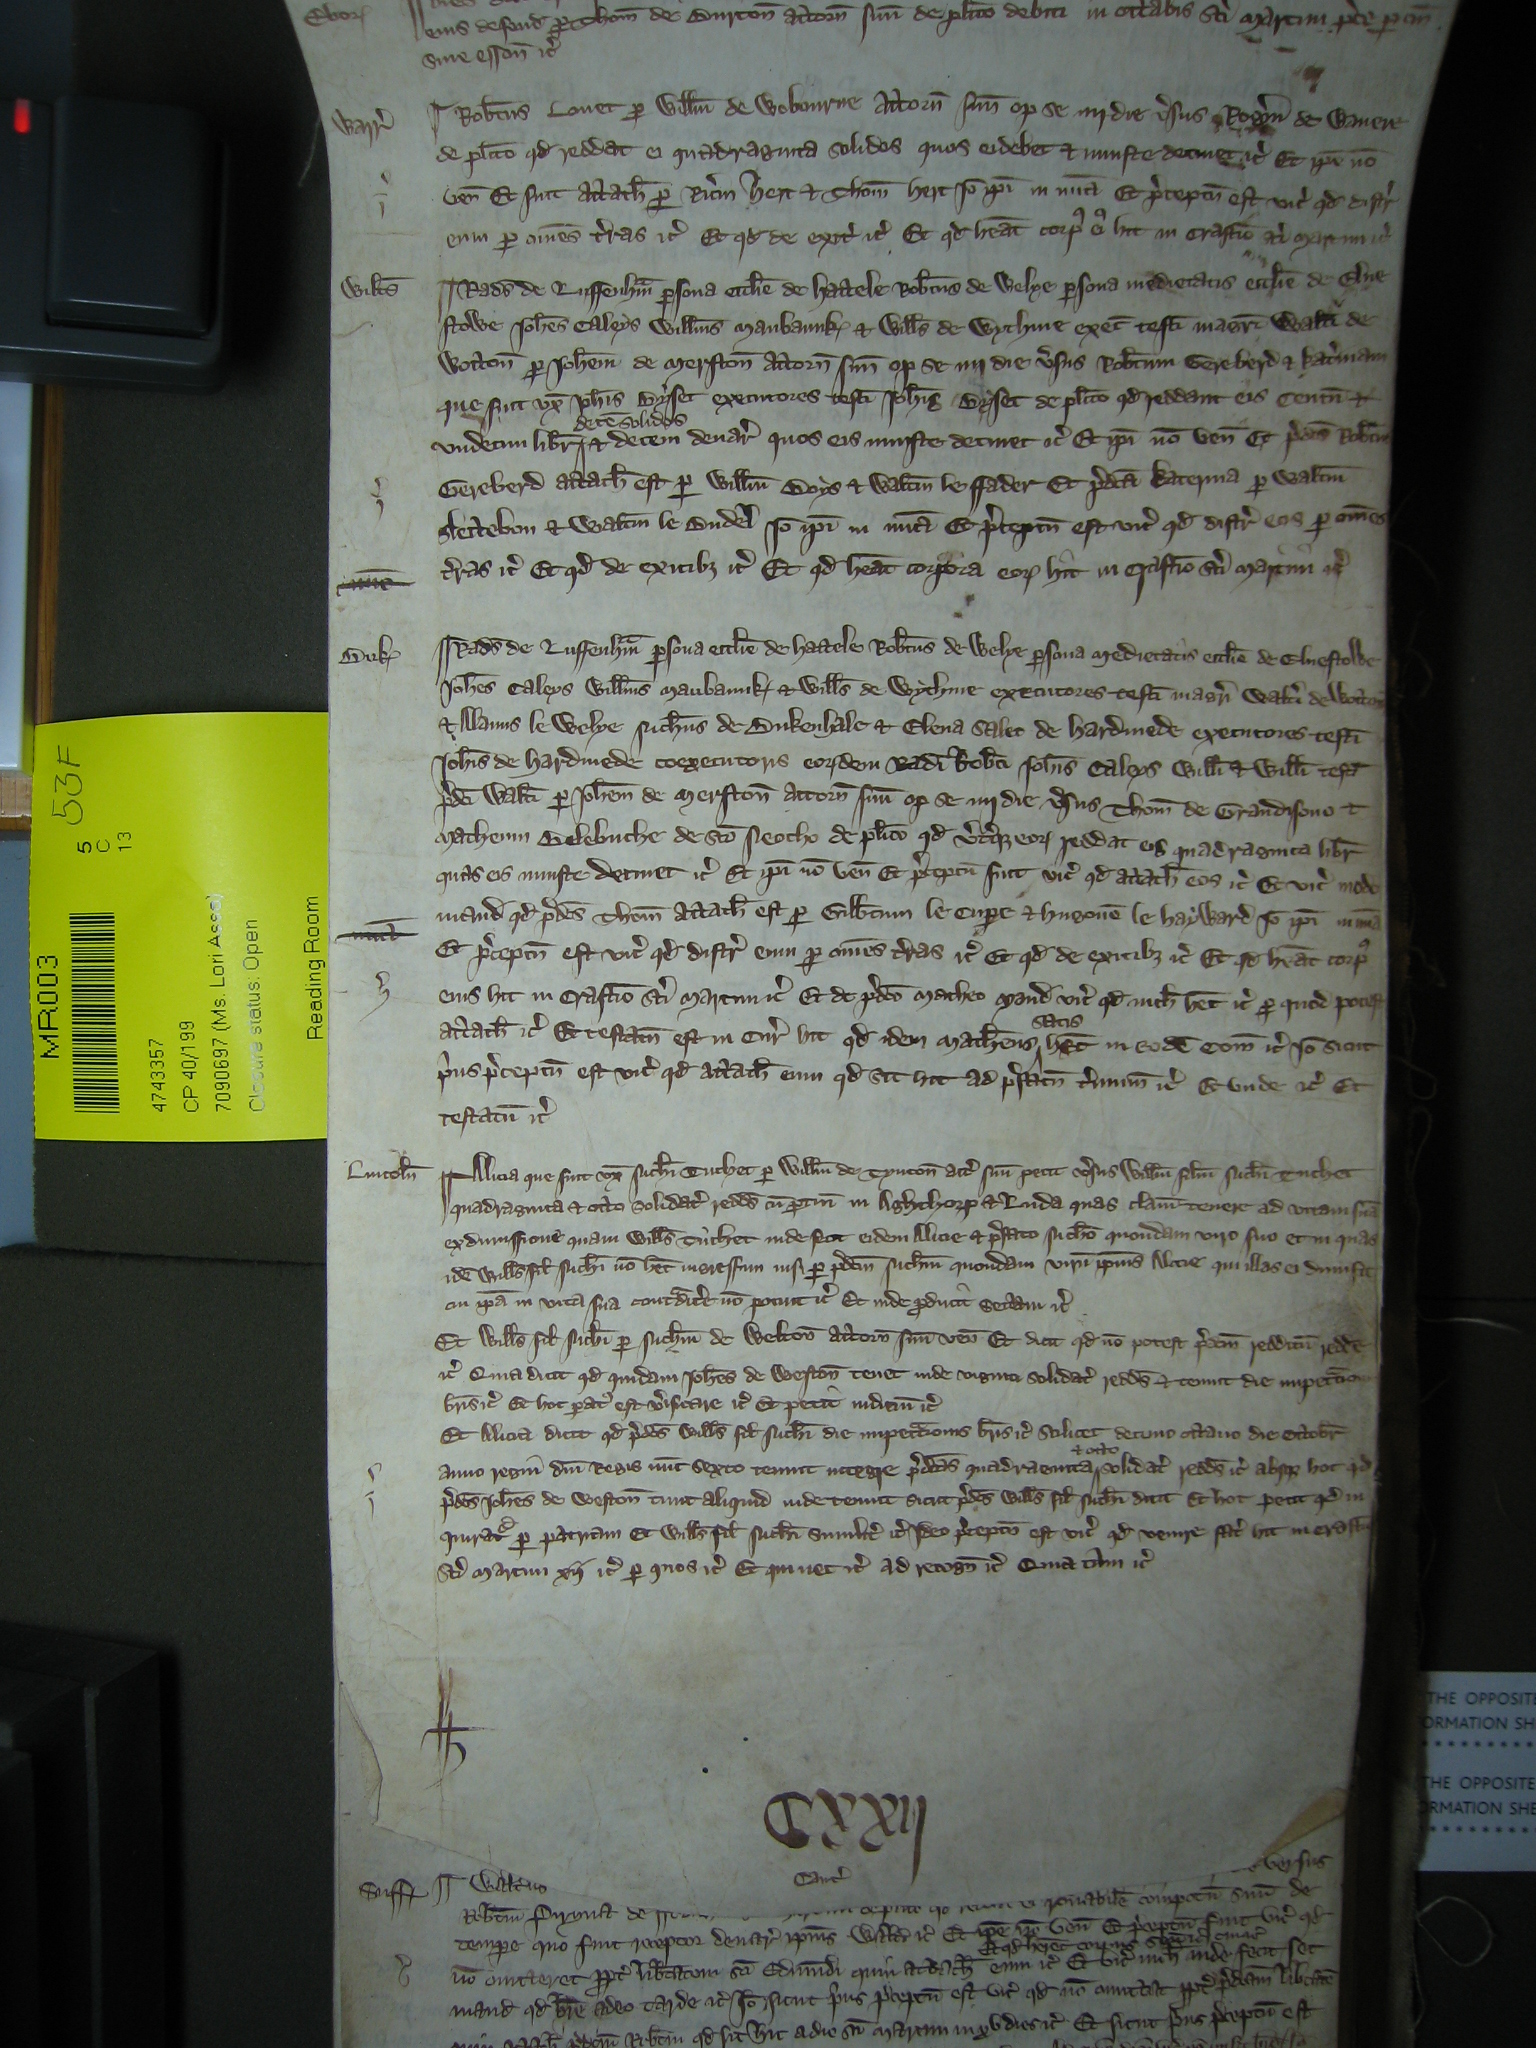 Ebor
eius defend p Thom de Burton attorn suu de plito debiti in octabis Sci Martini prece parciu
sine esson ic
Warr Robtus Louet p Willm de Wobourne attorn suu op se iiij die vsus Rogm de Wauere
de plito qd reddat ei quadraginta solidos quos ei debet & iniuste detinet ic Et ipe no
ven Et fuit attach p Ricm hert & Thom hert Io ipi in mia Et pceptu est vic qd distr
eum p omes tras ic Et qd de exit ic Et qd heat corp ei hic in Crastino sci Martini ic
Wiltes Rads de Luffenhm psona ecclie de hattele Robtus de Welye psona medietatis ecclie de Elne
stowe Johes Caleys Willms Maubaunk & Wills de Wythme exec testi magri Walti de
Wotton p Johem de Merston attorn suu op se iiij die vsus Robtum Gereberd & Katinam
que fuit vx Johis Byset executores testi Johis Byset de plito qd reddant eis Centu &
decē solidos
vndecim libr & decem denar quos eis iniuste detinet ic Et ipi no ven Et pdcs Robtus
Gereberd attach est p Willm Boys & Waltm le ffader Et pdca Katerina p Waltm
Slettebon & Waltm le Budel Io ipi in mia Et pceptu est vic qd distr eos p omes
tras ic Et qd de exitibz ic Et qd heat corpora eor hic in Crastino Sci Martini ic
Buk Rads de Luffenhm psona ecclie de hattele Robtus de Welye psona medietatis ecclie de Elnestowe
Johes Caleys Willms Maubaunk & Wills de Wythme executores testi magri Walti de Wotton
& Alanus le Welye Michus de Bukenhale & Elena Salec de hardmede executores testi
Johis de hardmede coexecutoris eordem Radi Robti Johis Caleys Willi & Willi testi
pdci Walti p Johem de Merston attorn suu op se iiij die vsus Thom de Grandisono &
Matheum Belebuche de Sco Neotho de plito qd vtqz eor reddat eis quadraginta libr
quas eis iniuste detinet ic Et ipi no ven Et pceptu fuit vic qd attach eos ic Et vic modo
mand qd pdcs Thom attach est p Gilbtum le Cupe & hugone le hayward Io ipi in mia
Et pceptu est vic qd distr eum p omes tras ic Et qd de exitibz ic Et qd heat corp
eius hic in Crastino Sci Martini ic Et de pdco Matheo mand vic qd nich het ic p quod potest
satis
attach ic Et testatu est in Cur hic qd idem Matheus het in eode Com ic Io sicut
prius pceptu est vic qd attach eum qd sit hic ad pfatu tminum ic Et vnde ic Et
testatu ic
Lincoln Alicia que fuit vx Michi Tuchet p Willm de Tynton att suu petit vsus Willm filiu Michi Tuchet
quadraginta & octo solidat redds cu ptin in Aghthorp & Luda quas clam tenere ad vitam sua
ex dimissione quam Wills Tuchet inde fecit eidem Alicie & pfato Micho quondam viro suo et in quas
ide Wills fil Michi no het ingressum nisi p pdcm Michm quondam viru ipius Alicie qui illas ei dimisit
cui ipa in vita sua contdice no potuit ic Et inde pducit sectam ic
Et Wills fil Michi p Michm de Welton attorn suu ven Et dicit qd no potest pdcm redditu redde
ic Quia dicit qd quidam Johes de Weston tenet inde viginti solidat redds & tenuit die impetracionis
bris ic Et hoc pat est vificare ic Et petit iudiciu ic
Et Alicia dicit qd pdcs Wills fil Michi die impetracionis bris ic Scilicet decimo octauo die Octobr
& octo
anno regni dni Regis nuc sexto tenuit integre pdcas quadraginta solidat redds ic absqz hoc qd
pdcs Johes de Weston tunc aliquid inde tenuit sicut pdcs Wills fil Michi dicit Et hoc petit qd in
quirat p patriam Et Wills fil Michi similit ic Ideo pceptu est vic qd venire fac hic in crastino
Sci Martini xij ic p quos ic Et qui nec ic ad recogn ic Quia tam ic
CXXIJ
Cant
Suff Waltus versus
Robtm de ronabile compotu suu de
tempe quo fuit receptor denar ipius Walti ic Et ipe no ven Et pceptu fuit vic qd
no omitteret ppt libtatem sci Edmundi quin attach eum ic Et vic nich inde fecit set
mand qd bre adeo tarde ic Io sicut prius pceptu est vic qd no omittat ppt pdcam libtate
quin attach pdcm Robtm qd sit hic a die sci Martini in xv dies ic Et sicut prius pceptu est
MR003
53F
5
C
13
4743357
CP 40/199
7090697 (Ms. Lori Assa)
Closure status: Open
Reading Room
THE OPPOSITE
ORMATION SHE
THE OPPOSITE
ORMATION SHE